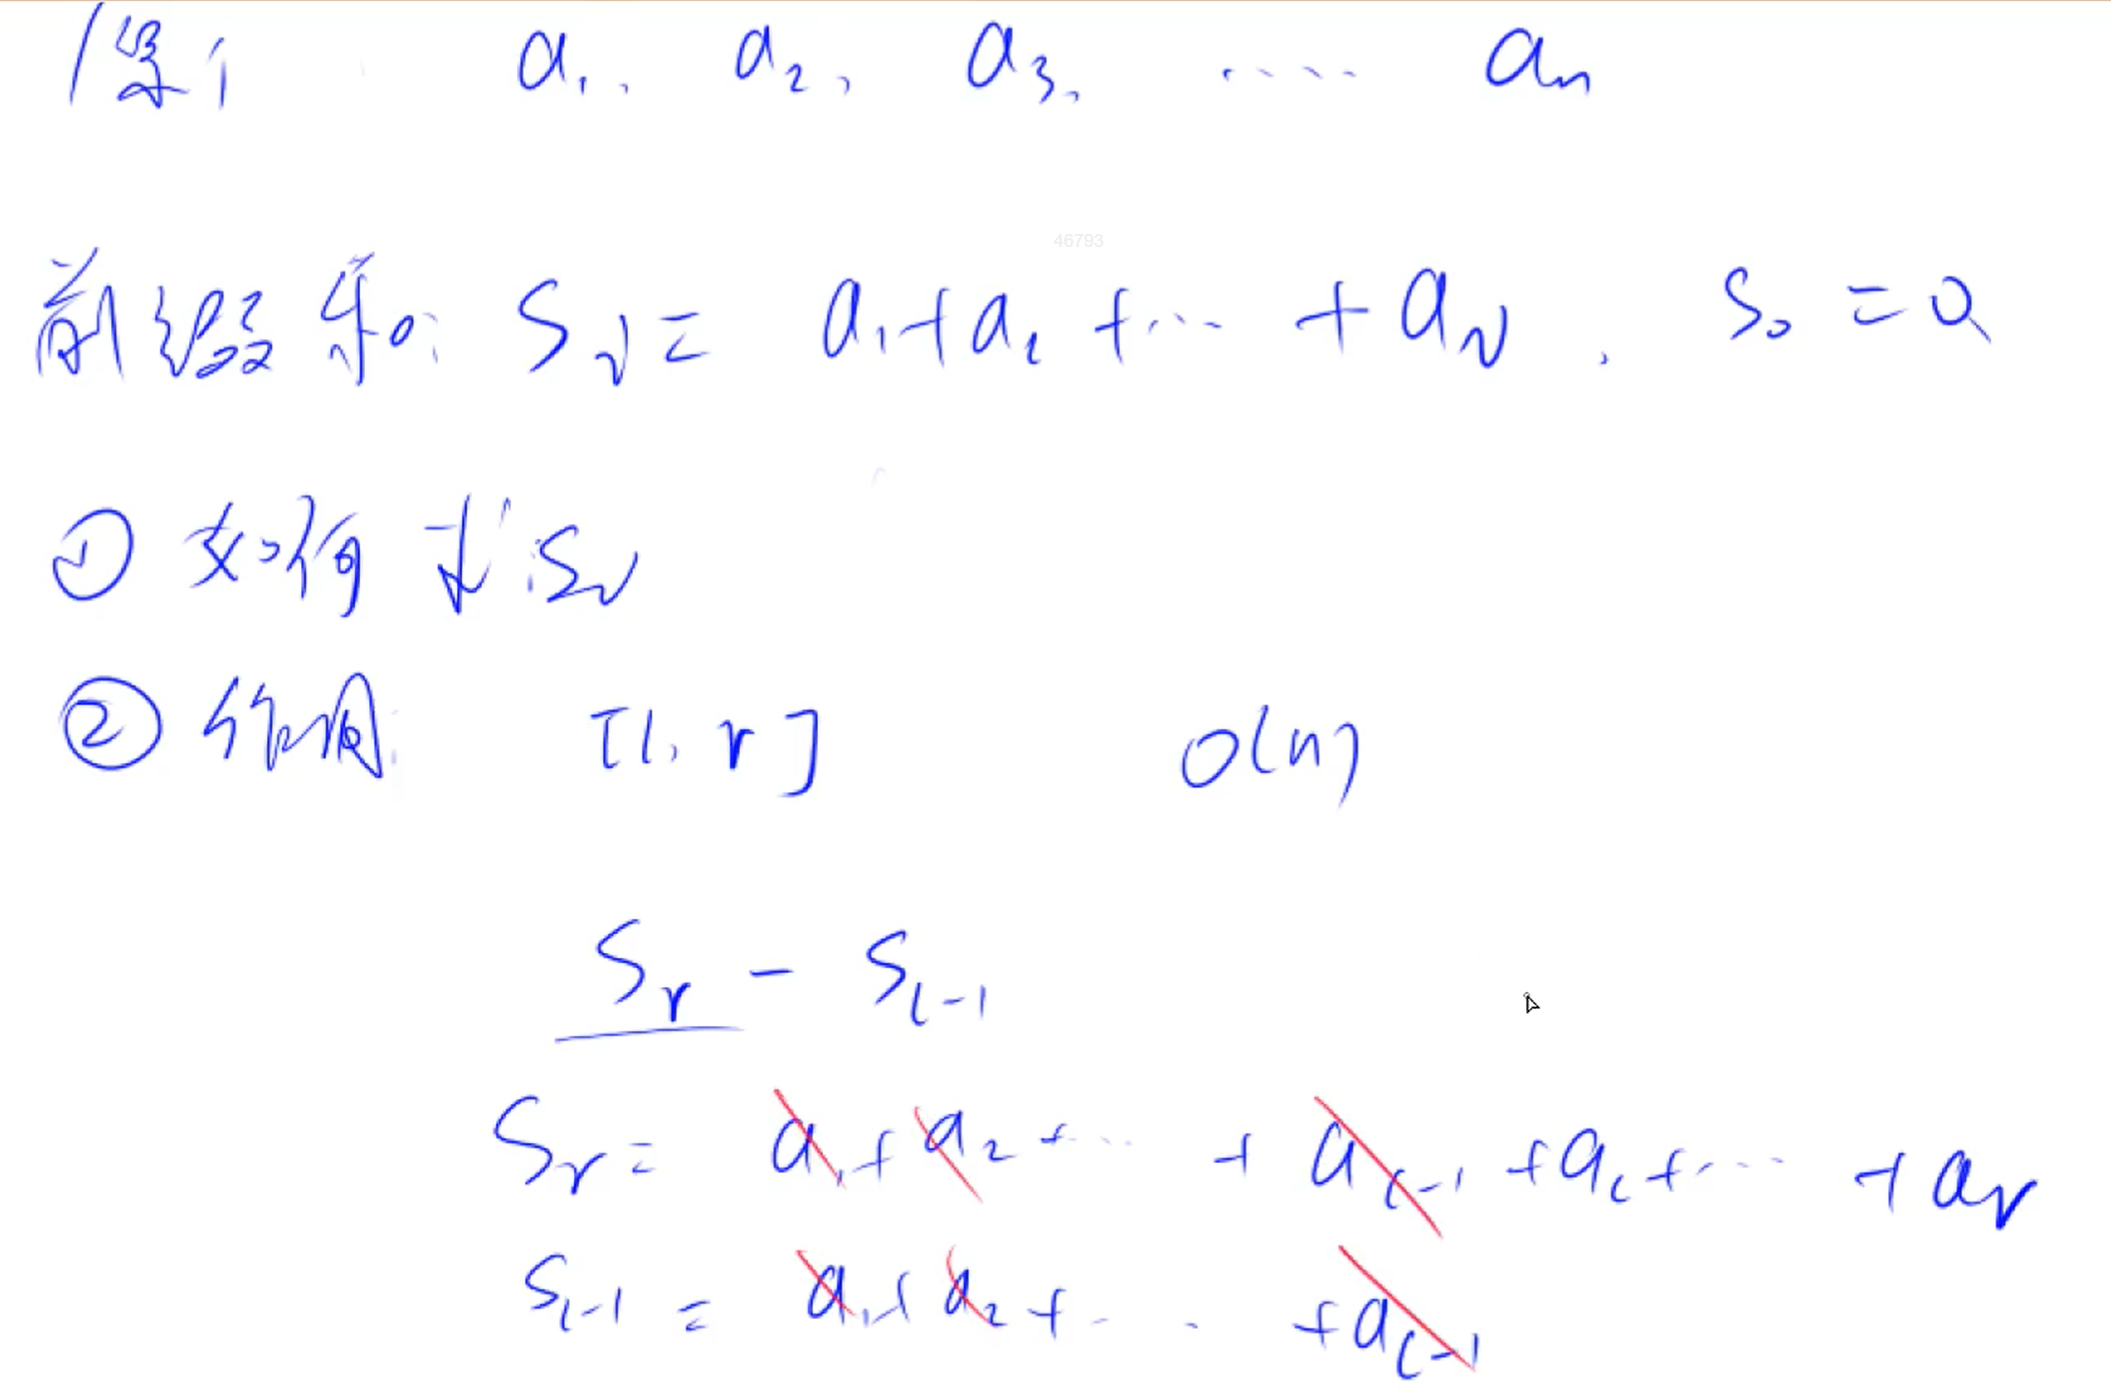 a₁, a₂, a₃, ..... aₙ
46793
前缀和: Sᵢ = a₁+a₂ +... + aᵢ. S₀ = 0
① 如何求Sᵢ
② 作用 [l, r] O(n)
Sᵣ - Sₗ₋₁
Sᵣ = a₁+a₂+... + aₗ₋₁ +aₗ+... + aᵣ
Sₗ₋₁ = a₁+a₂+... +aₗ₋₁